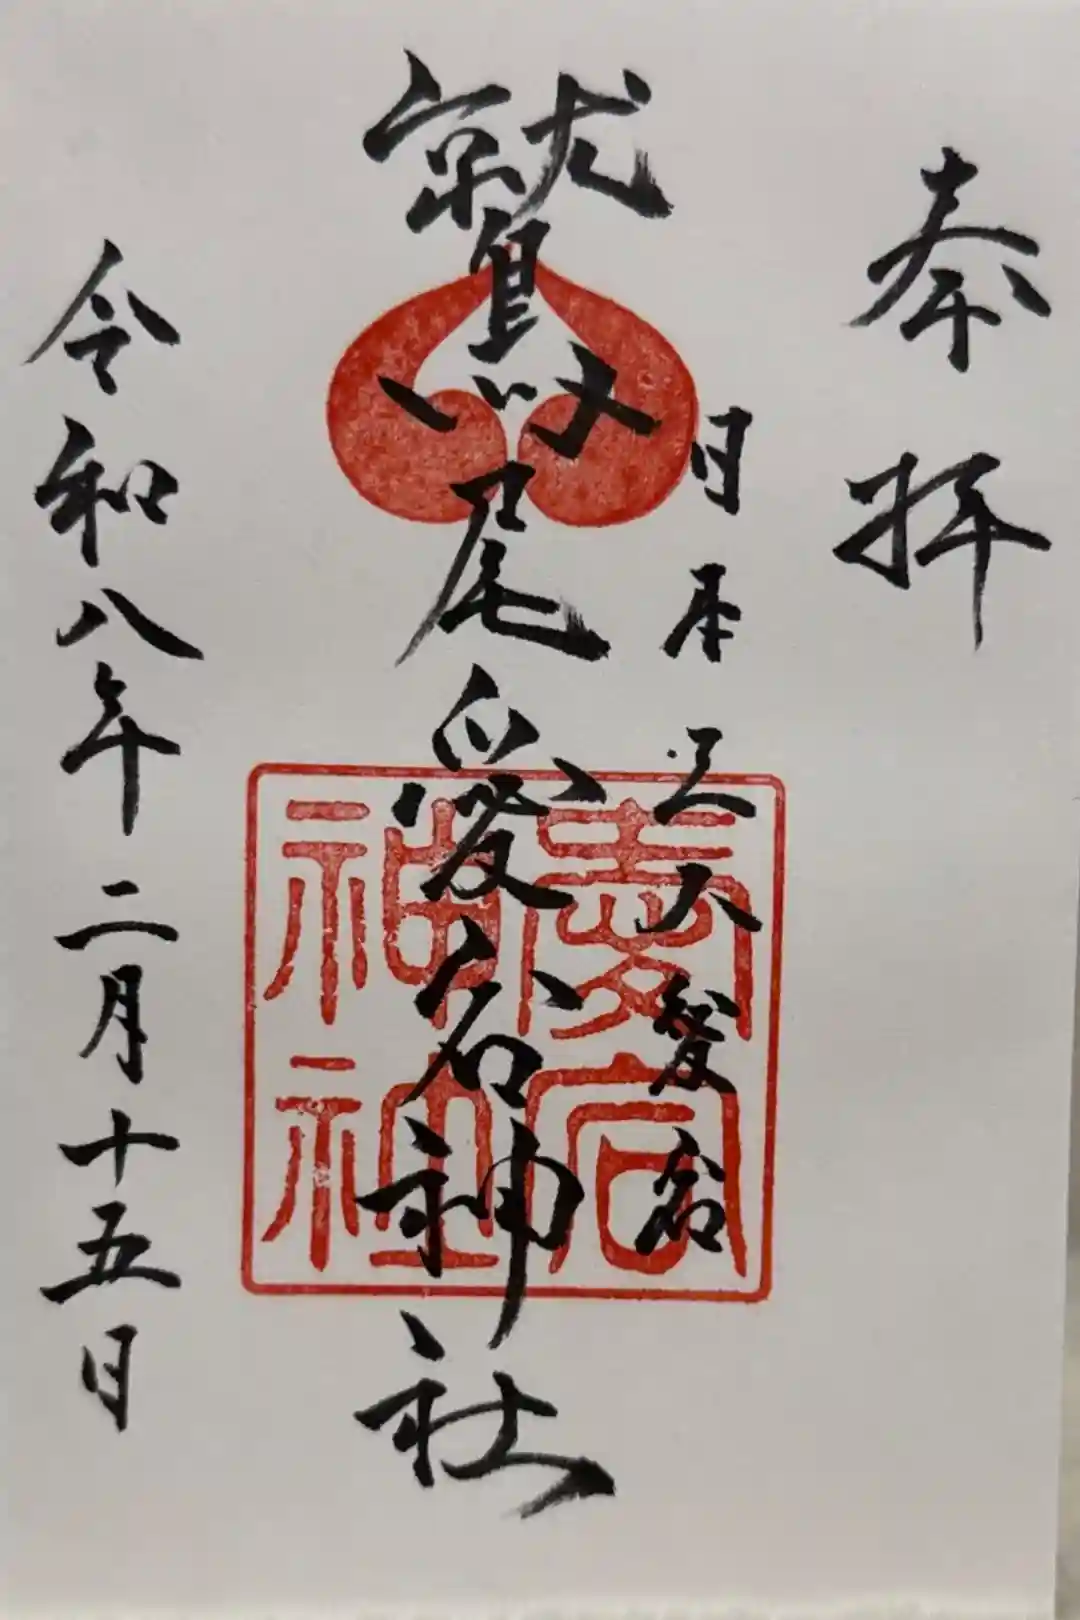 奉拝
日本三大愛宕
鷲尾愛宕神社
愛宕神社
令和八年二月十五日